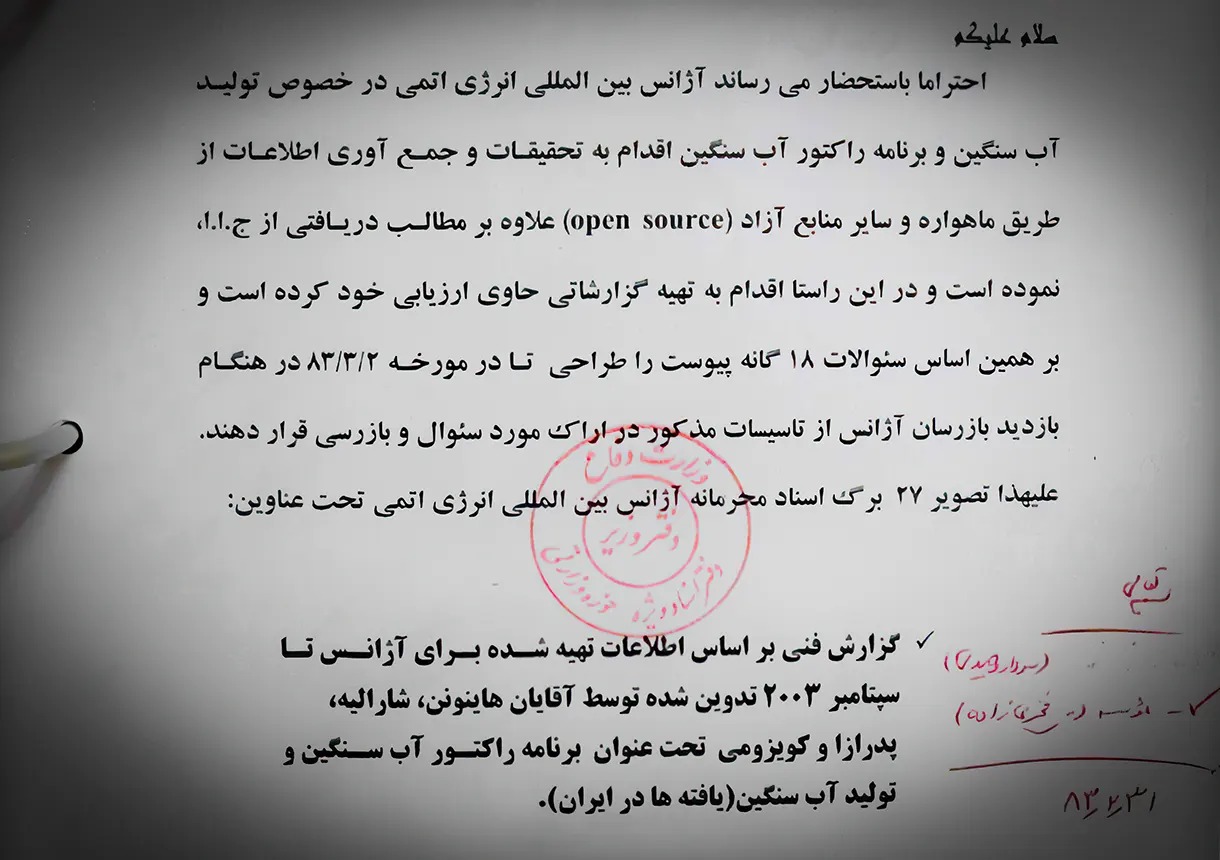 سلام علیکم
احتراما باستحضار می رساند آژانس بین المللی انرژی اتمی در خصوص تولید
آب سنگین و برنامه راکتور آب سنگین اقدام به تحقیقات و جمع آوری اطلاعات از
طریق ماهواره و سایر منابع آزاد (open source) علاوه بر مطالب دریافتی از ج.ا.ا،
نموده است و در این راستا اقدام به تهیه گزارشاتی حاوی ارزیابی خود کرده است و
بر همین اساس سئوالات ۱۸ گانه پیوست را طراحی تا در مورخه ۸۳/۳/۲ در هنگام
بازدید بازرسان آژانس از تاسیسات مذکور در اراک مورد سئوال و بازرسی قرار دهند.
علیهذا تصویر ۲۷ برگ اسناد محرمانه آژانس بین المللی انرژی اتمی تحت عناوین:
وزارت دفاع
دفتر وزیر
دفتر اسناد ویژه حوزه وزارتی
✓ گزارش فنی بر اساس اطلاعات تهیه شده برای آژانس تا
سپتامبر ۲۰۰۳ تدوین شده توسط آقایان هاینونن، شارالیه،
پدرازا و کویزومی تحت عنوان برنامه راکتور آب سنگین و
تولید آب سنگین(یافته ها در ایران).
(سردار وحیدی)
فخری زاده)
۸۳/۲/۳۱